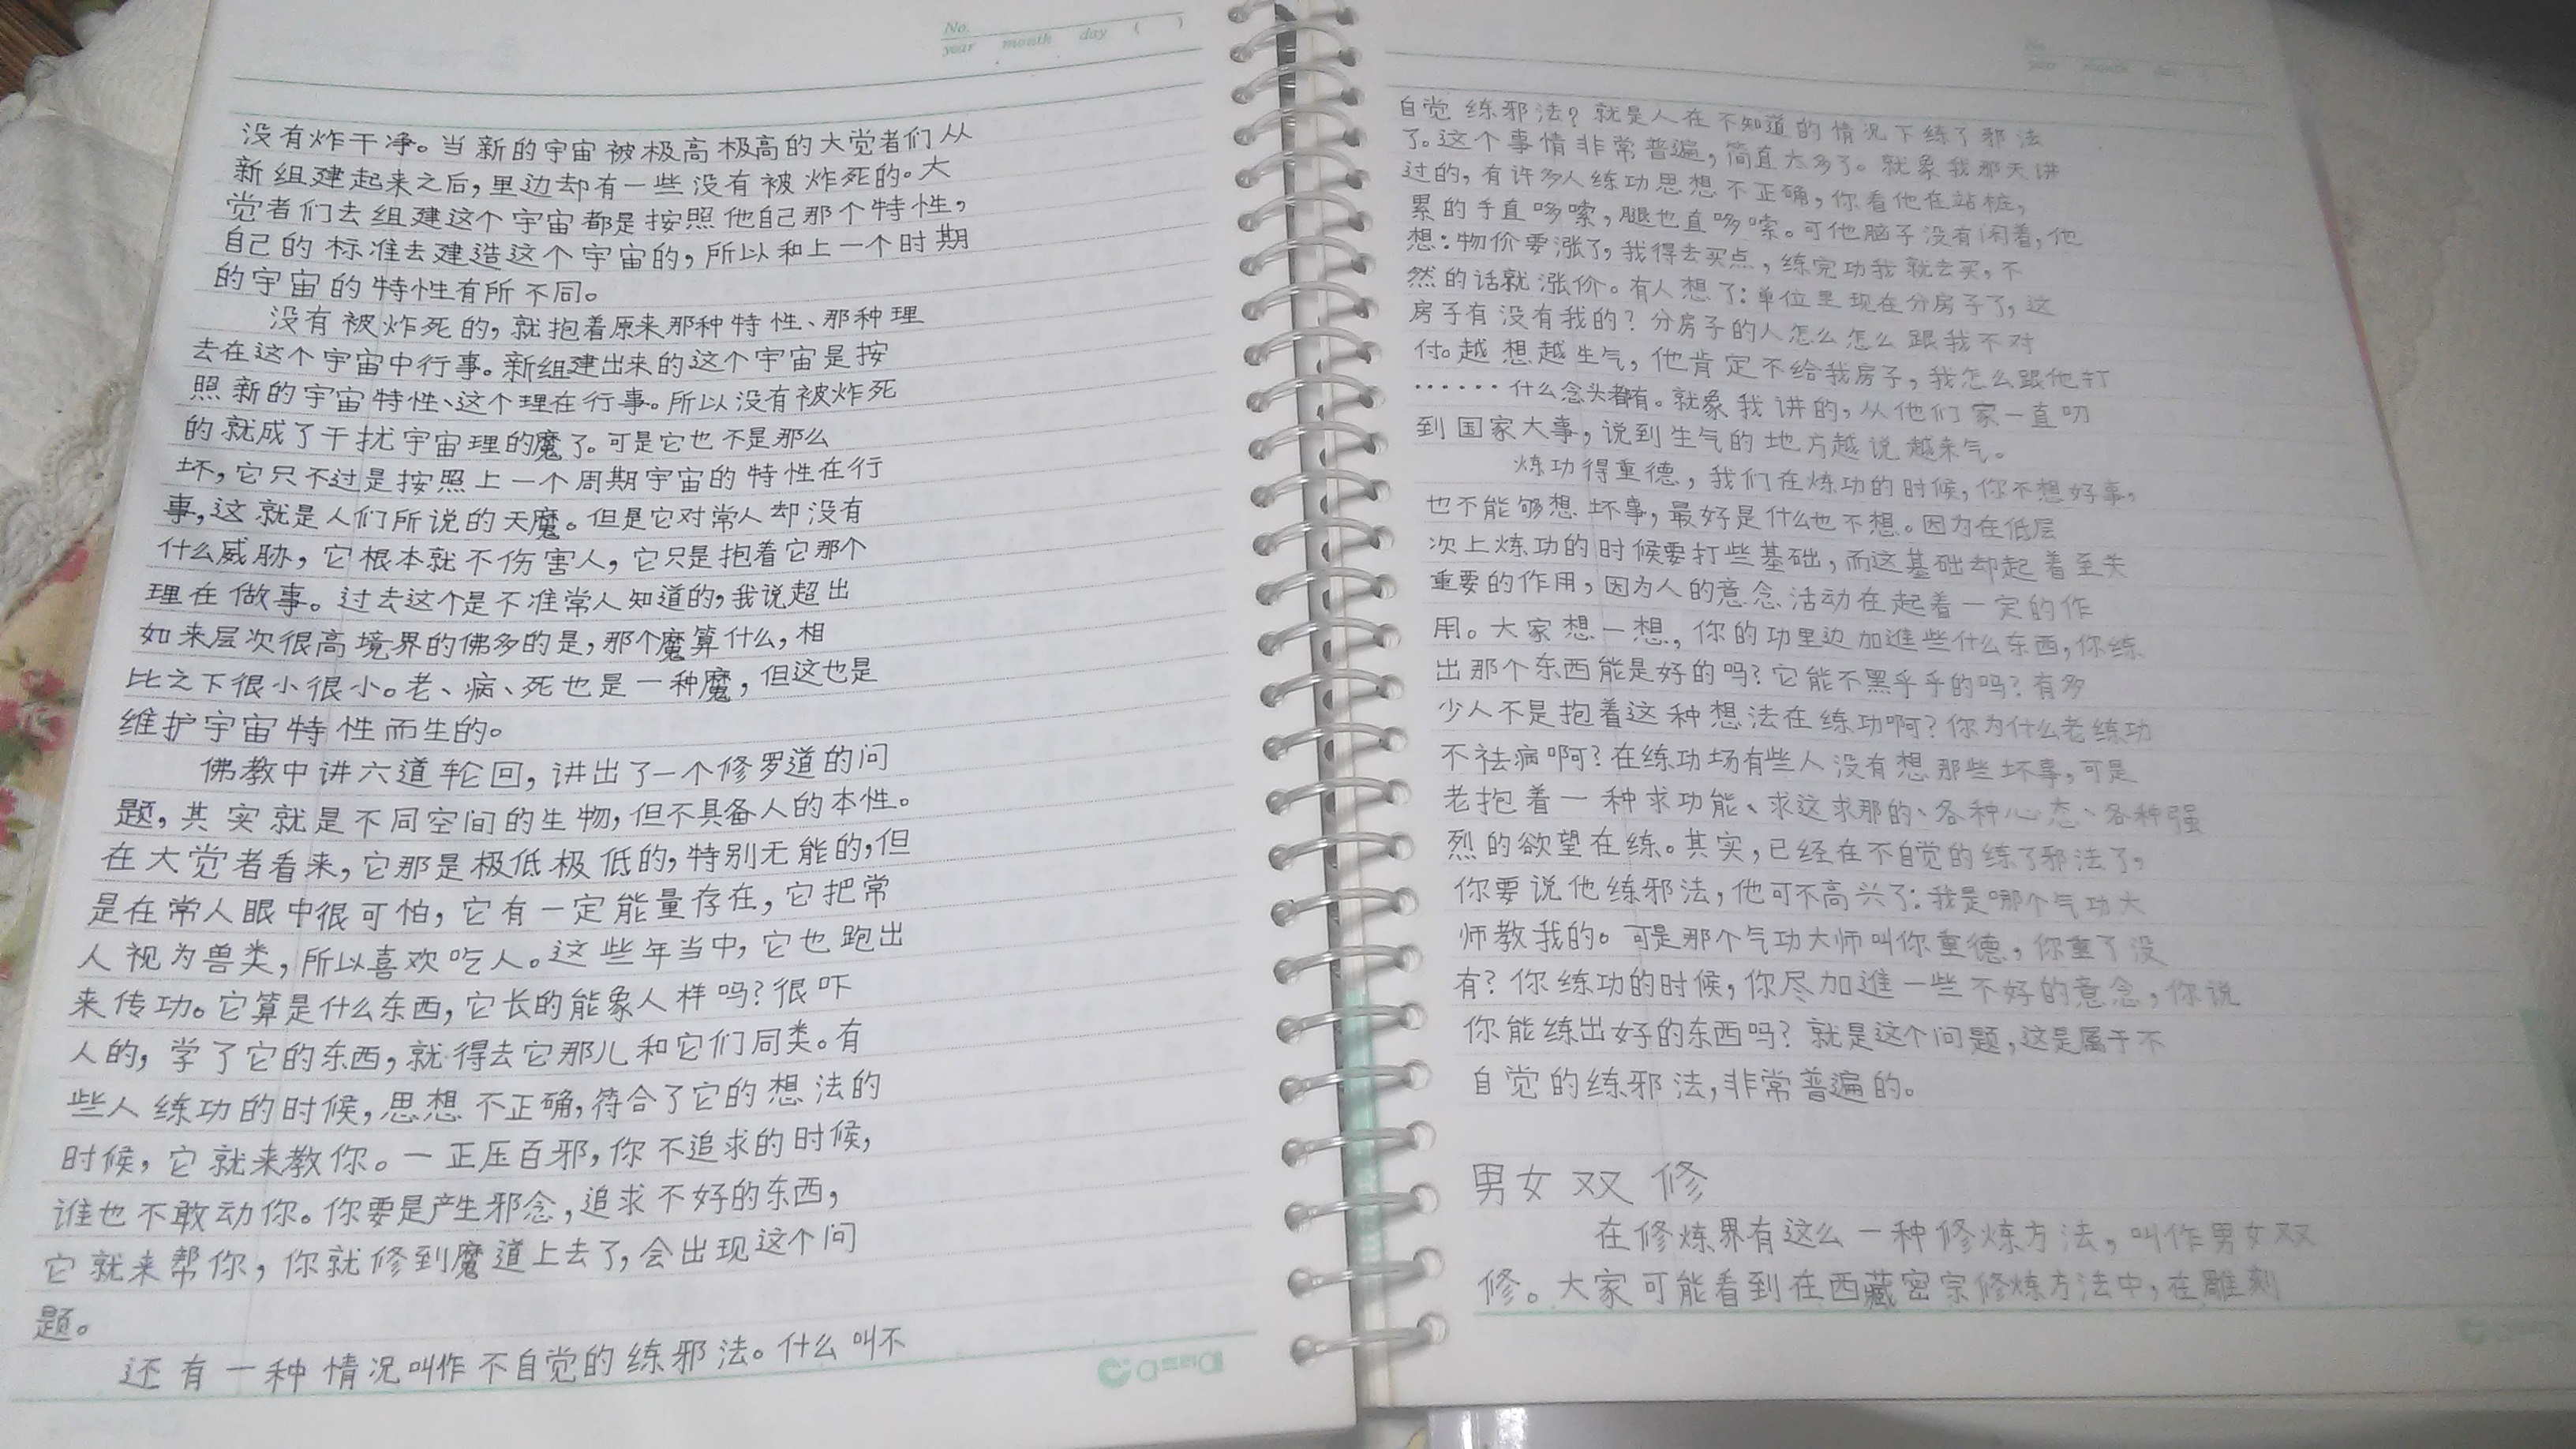 No.
year month day ( )
没有炸干净。当新的宇宙被极高极高的大觉者们从
新组建起来之后，里边却有一些没有被炸死的。大
觉者们去组建这个宇宙都是按照他自己那个特性，
自己的标准去建造这个宇宙的，所以和上一个时期
的宇宙的特性有所不同。
没有被炸死的，就抱着原来那种特性、那种理
去在这个宇宙中行事。新组建出来的这个宇宙是按
照新的宇宙特性、这个理在行事。所以没有被炸死
的就成了干扰宇宙理的魔了。可是它也不是那么
坏，它只不过是按照上一个周期宇宙的特性在行
事，这就是人们所说的天魔。但是它对常人却没有
什么威胁，它根本就不伤害人，它只是抱着它那个
理在做事。过去这个是不准常人知道的，我说超出
如来层次很高境界的佛多的是，那个魔算什么，相
比之下很小很小。老、病、死也是一种魔，但这也是
维护宇宙特性而生的。
佛教中讲六道轮回，讲出了一个修罗道的问
题，其实就是不同空间的生物，但不具备人的本性。
在大觉者看来，它那是极低极低的，特别无能的，但
是在常人眼中很可怕，它有一定能量存在，它把常
人视为兽类，所以喜欢吃人。这些年当中，它也跑出
来传功。它算是什么东西，它长的能象人样吗？很吓
人的，学了它的东西，就得去它那儿和它们同类。有
些人练功的时候，思想不正确，符合了它的想法的
时候，它就来教你。一正压百邪，你不追求的时候，
谁也不敢动你。你要是产生邪念，追求不好的东西，
它就来帮你，你就修到魔道上去了，会出现这个问
题。
还有一种情况叫作不自觉的练邪法。什么叫不
No.
year month day
自觉练邪法？就是人在不知道的情况下练了邪法
了。这个事情非常普遍，简直太多了。就象我那天讲
过的，有许多人练功思想不正确，你看他在站桩，
累的手直哆嗦，腿也直哆嗦。可他脑子没有闲着，他
想：物价要涨了，我得去买点，练完功我就去买，不
然的话就涨价。有人想了：单位里现在分房子了，这
房子有没有我的？分房子的人怎么怎么跟我不对
付。越想越生气，他肯定不给我房子，我怎么跟他打
……什么念头都有。就象我讲的，从他们家一直叨
到国家大事，说到生气的地方越说越来气。
炼功得重德，我们在炼功的时候，你不想好事，
也不能够想坏事，最好是什么也不想。因为在低层
次上炼功的时候要打些基础，而这基础却起着至关
重要的作用，因为人的意念活动在起着一定的作
用。大家想一想，你的功里边加進些什么东西，你练
出那个东西能是好的吗？它能不黑乎乎的吗？有多
少人不是抱着这种想法在练功啊？你为什么老练功
不祛病啊？在练功场有些人没有想那些坏事，可是
老抱着一种求功能、求这求那的、各种心态、各种强
烈的欲望在练。其实，已经在不自觉的练了邪法了，
你要说他练邪法，他可不高兴了：我是哪个气功大
师教我的。可是那个气功大师叫你重德，你重了没
有？你练功的时候，你尽加進一些不好的意念，你说
你能练出好的东西吗？就是这个问题，这是属于不
自觉的练邪法，非常普遍的。
男女双修
在修炼界有这么一种修炼方法，叫作男女双
修。大家可能看到在西藏密宗修炼方法中，在雕刻